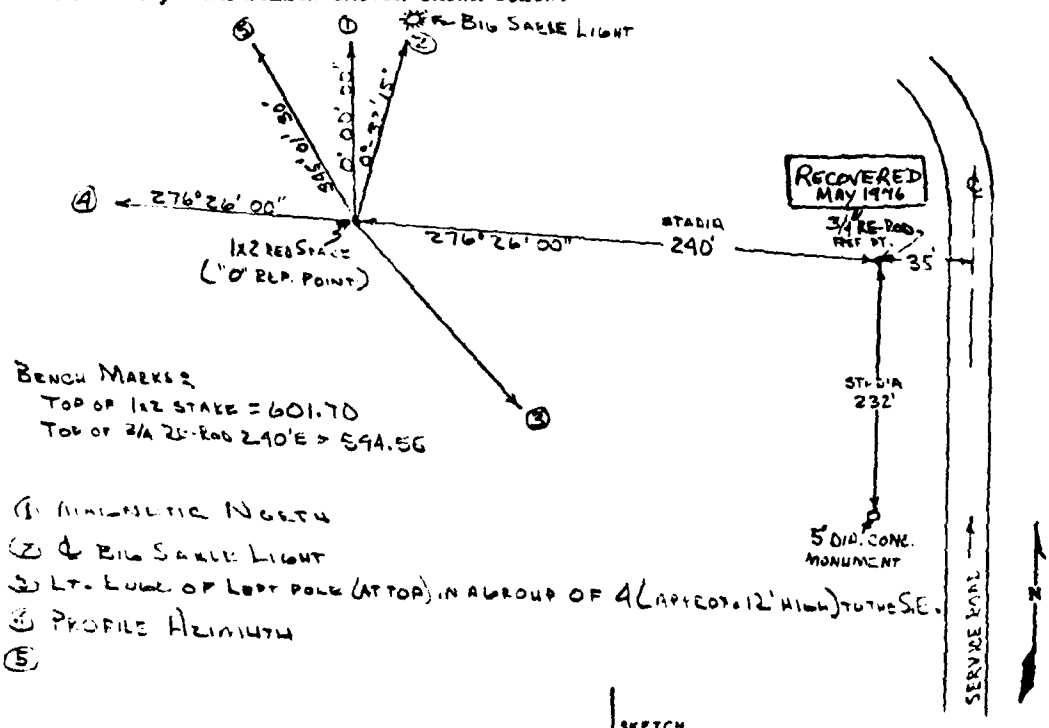 ⑤ ① ② BIG SABLE LIGHT
0° 00' 00"
④ 276° 26' 00"
276° 26' 00"
1x2 RED STAKE
("0" REP. POINT)
STADIA
240'
RECOVERED
MAY 1976
3/4" RE-ROD
REF PT.
35'
℄
STADIA
232'
③
5" DIA. CONC.
MONUMENT
SERVICE ROAD
N
BENCH MARKS:
TOP OF 1x2 STAKE = 601.70
TOP OF 3/4 RE-ROD 240'E = 594.56
① MAGNETIC NORTH
② ℄ BIG SABLE LIGHT
③ LT. EDGE OF LEFT POLE (AT TOP) IN A GROUP OF 4 (APPROX. 12' HIGH) TO THE S.E.
④ PROFILE AZIMUTH
⑤
SKETCH